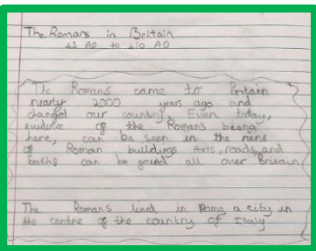 The Romans in Britain
45 AD to 410 AD
The Romans came to Britain
nearly 2000 years ago and
changed our country. Even today,
evidence of the Romans being
here, can be seen in the ruins
of Roman buildings forts, roads, and
baths can be found all over Britain
The Romans lived in Rome a city in
the centre of the country of Italy